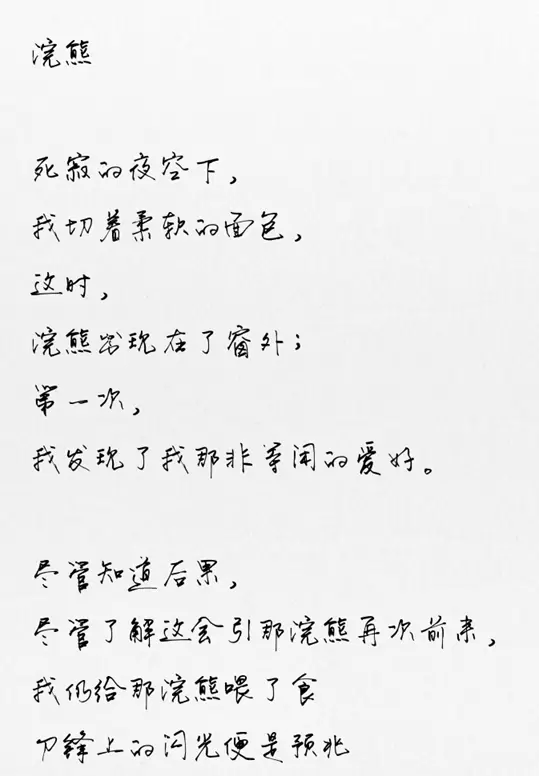 浣熊
死寂的夜空下，
我切着柔软的面包，
这时，
浣熊出现在了窗外；
第一次，
我发现了我那非等闲的爱好。
尽管知道后果，
尽管了解这会引那浣熊再次前来，
我仍给那浣熊喂了食
刀锋上的闪光便是预兆